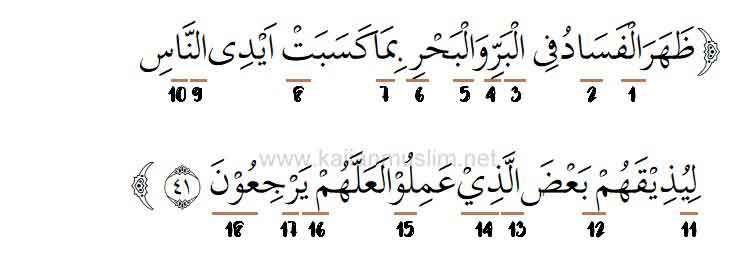 ﴿ ظَهَرَ الْفَسَادُ فِى الْبَرِّ وَالْبَحْرِ بِمَا كَسَبَتْ اَيْدِى النَّاسِ
1 2 3 4 5 6 7 8 9 10
www.kajianmuslim.net
لِيُذِيْقَهُمْ بَعْضَ الَّذِيْ عَمِلُوْا لَعَلَّهُمْ يَرْجِعُوْنَ ٤١ ﴾
11 12 13 14 15 16 17 18